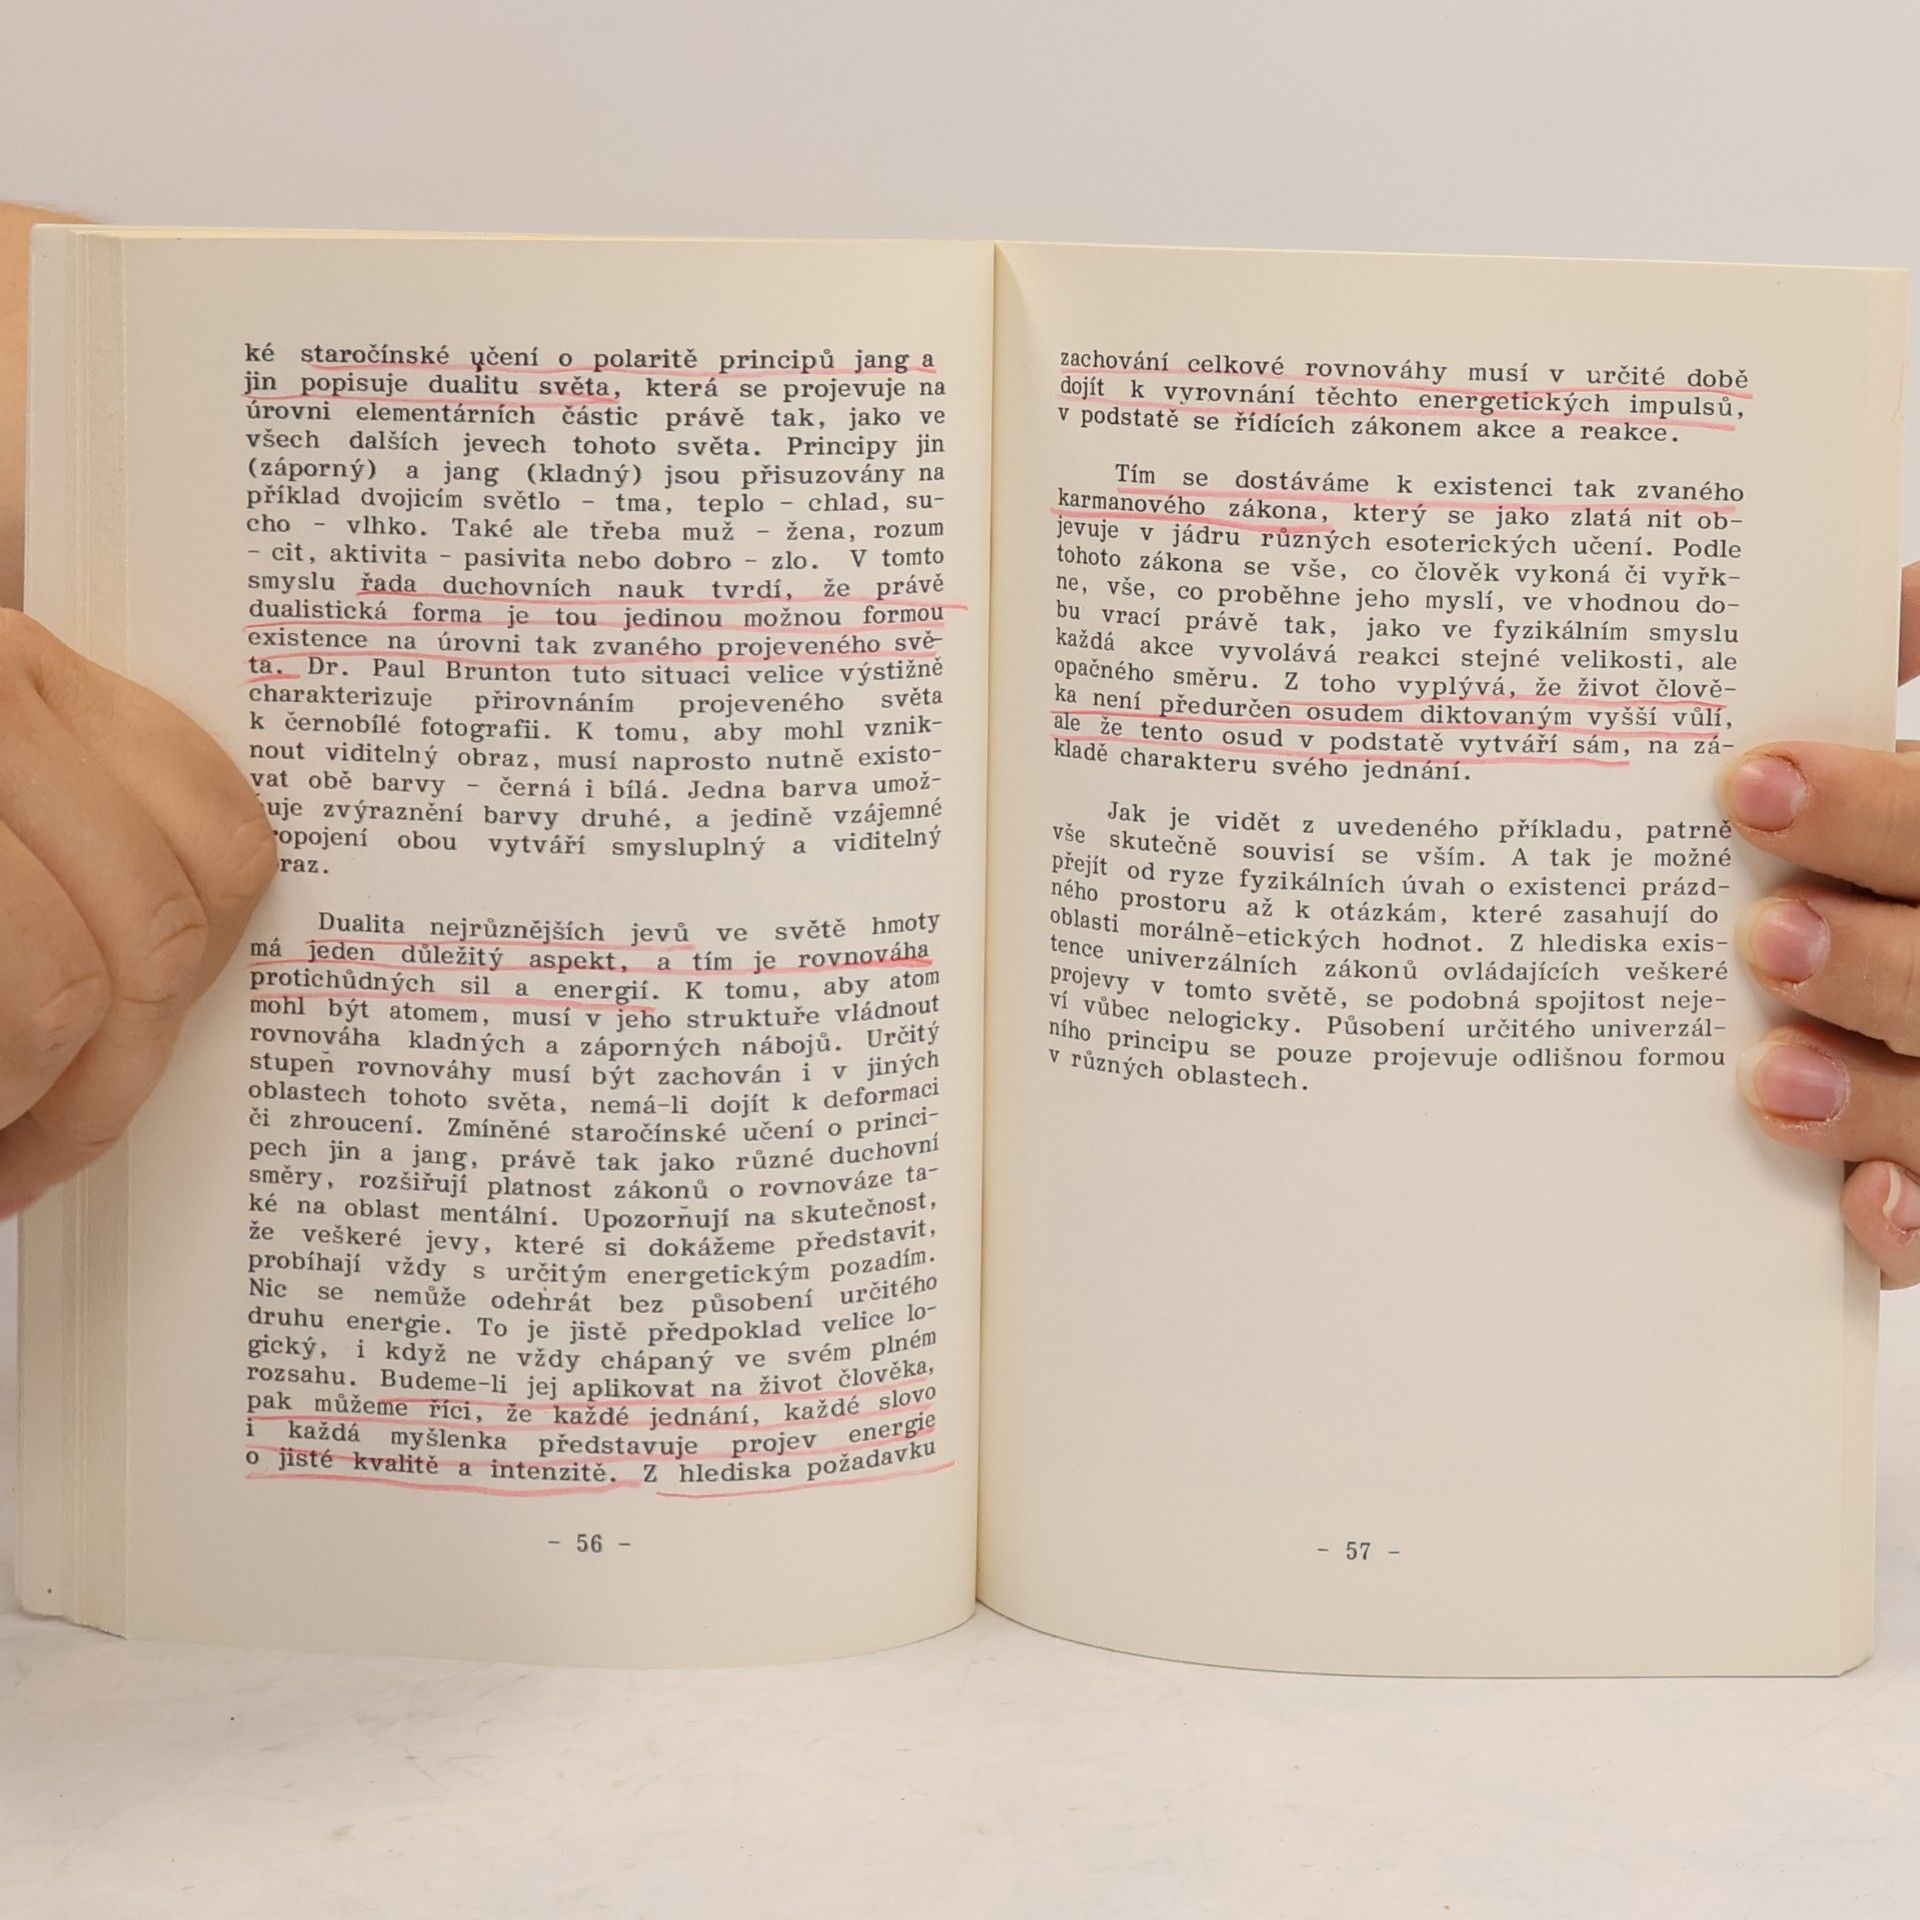 ké staročínské učení o polaritě principů jang a
jin popisuje dualitu světa, která se projevuje na
úrovni elementárních částic právě tak, jako ve
všech dalších jevech tohoto světa. Principy jin
(záporný) a jang (kladný) jsou přisuzovány na
příklad dvojicím světlo - tma, teplo - chlad, su-
cho - vlhko. Také ale třeba muž - žena, rozum
- cit, aktivita - pasivita nebo dobro - zlo. V tomto
smyslu řada duchovních nauk tvrdí, že právě
dualistická forma je tou jedinou možnou formou
existence na úrovni tak zvaného projeveného svě-
ta. Dr. Paul Brunton tuto situaci velice výstižně
charakterizuje přirovnáním projeveného světa
k černobílé fotografii. K tomu, aby mohl vznik-
nout viditelný obraz, musí naprosto nutně existo-
vat obě barvy - černá i bílá. Jedna barva umož-
uje zvýraznění barvy druhé, a jedině vzájemné
ropojení obou vytváří smysluplný a viditelný
raz.
Dualita nejrůznějších jevů ve světě hmoty
má jeden důležitý aspekt, a tím je rovnováha
protichůdných sil a energií. K tomu, aby atom
mohl být atomem, musí v jeho struktuře vládnout
rovnováha kladných a záporných nábojů. Určitý
stupeň rovnováhy musí být zachován i v jiných
oblastech tohoto světa, nemá-li dojít k deformaci
či zhroucení. Zmíněné staročínské učení o princi-
pech jin a jang, právě tak jako různé duchovní
směry, rozšiřují platnost zákonů o rovnováze ta-
ké na oblast mentální. Upozorňují na skutečnost,
že veškeré jevy, které si dokážeme představit,
probíhají vždy s určitým energetickým pozadím.
Nic se nemůže odehrát bez působení určitého
druhu energie. To je jistě předpoklad velice lo-
gický, i když ne vždy chápaný ve svém plném
rozsahu. Budeme-li jej aplikovat na život člověka,
pak můžeme říci, že každé jednání, každé slovo
i každá myšlenka představuje projev energie
o jisté kvalitě a intenzitě. Z hlediska požadavku
- 56 -
zachování celkové rovnováhy musí v určité době
dojít k vyrovnání těchto energetických impulsů,
v podstatě se řídících zákonem akce a reakce.
Tím se dostáváme k existenci tak zvaného
karmanového zákona, který se jako zlatá nit ob-
jevuje v jádru různých esoterických učení. Podle
tohoto zákona se vše, co člověk vykoná či vyřk-
ne, vše, co proběhne jeho myslí, ve vhodnou do-
bu vrací právě tak, jako ve fyzikálním smyslu
každá akce vyvolává reakci stejné velikosti, ale
opačného směru. Z toho vyplývá, že život člově-
ka není předurčen osudem diktovaným vyšší vůlí,
ale že tento osud v podstatě vytváří sám, na zá-
kladě charakteru svého jednání.
Jak je vidět z uvedeného příkladu, patrně
vše skutečně souvisí se vším. A tak je možné
přejít od ryze fyzikálních úvah o existenci prázd-
ného prostoru až k otázkám, které zasahují do
oblasti morálně-etických hodnot. Z hlediska exis-
tence univerzálních zákonů ovládajících veškeré
projevy v tomto světě, se podobná spojitost neje-
ví vůbec nelogicky. Působení určitého univerzál-
ního principu se pouze projevuje odlišnou formou
v různých oblastech.
- 57 -